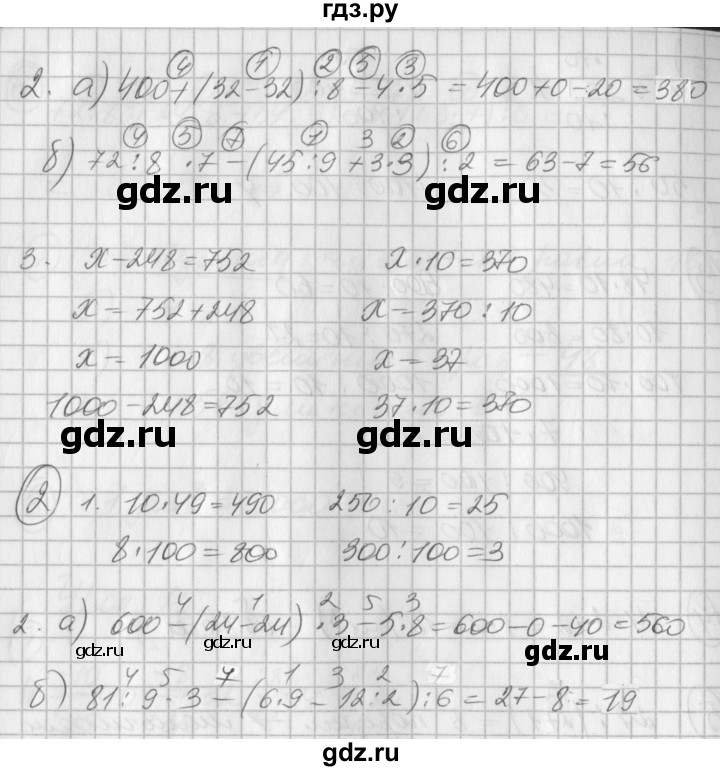 гдз.ру
④ ① ② ⑤ ③
2. а) 400+(32-32):8-4·5=400+0-20=380
④ ⑤ ⑦ ① 3 ② ⑥
б) 72:8·7-(45:9+3·3):2=63-7=56
gdz.ru gdz.ru
3. x-248=752 x·10=370
x=752+248 x=370:10
x=1000 x=37
1000-248=752 37·10=370
gdz.ru gdz.ru
② 1. 10·49=490 250:10=25
8·100=800 300:100=3
4 1 2 5 3
2. а) 600-(24-24)·3-5·8=600-0-40=560
gdz.ru gdz.ru gdz.ru gdz.ru
4 5 7 1 3 2 7
б) 81:9·3-(6·9-12:2):6=27-8=19
gdz.ru gdz.ru
gdz.ru